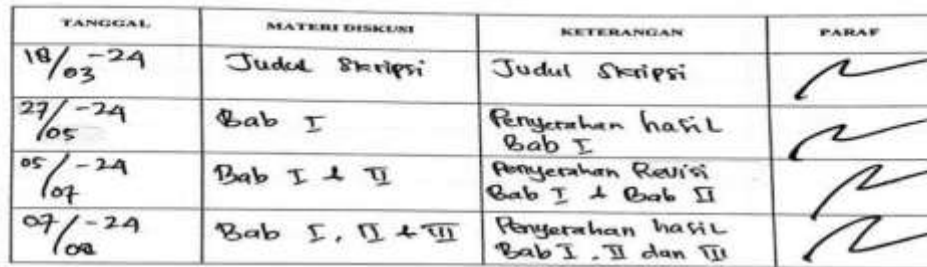 TANGGAL MATERI DISKUSI KETERANGAN PARAF
18/03-24 Judul Skripsi Judul Skripsi
27/05-24 Bab I Penyerahan hasil
Bab I
05/07-24 Bab I & II Penyerahan Revisi
Bab I & Bab II
07/08-24 Bab I, II & III Penyerahan hasil
Bab I, II dan III